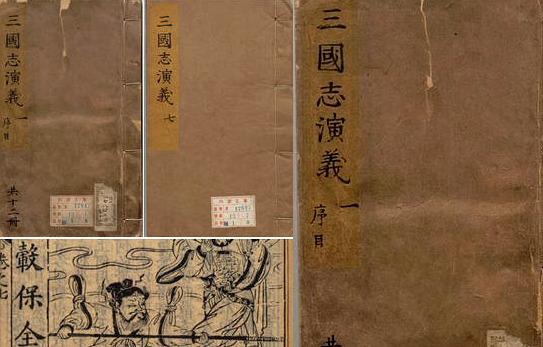 三國志演義 一
序目
共十二冊
三國志演義 七
三國志演義 一
序目
共
卷之七
轂保全